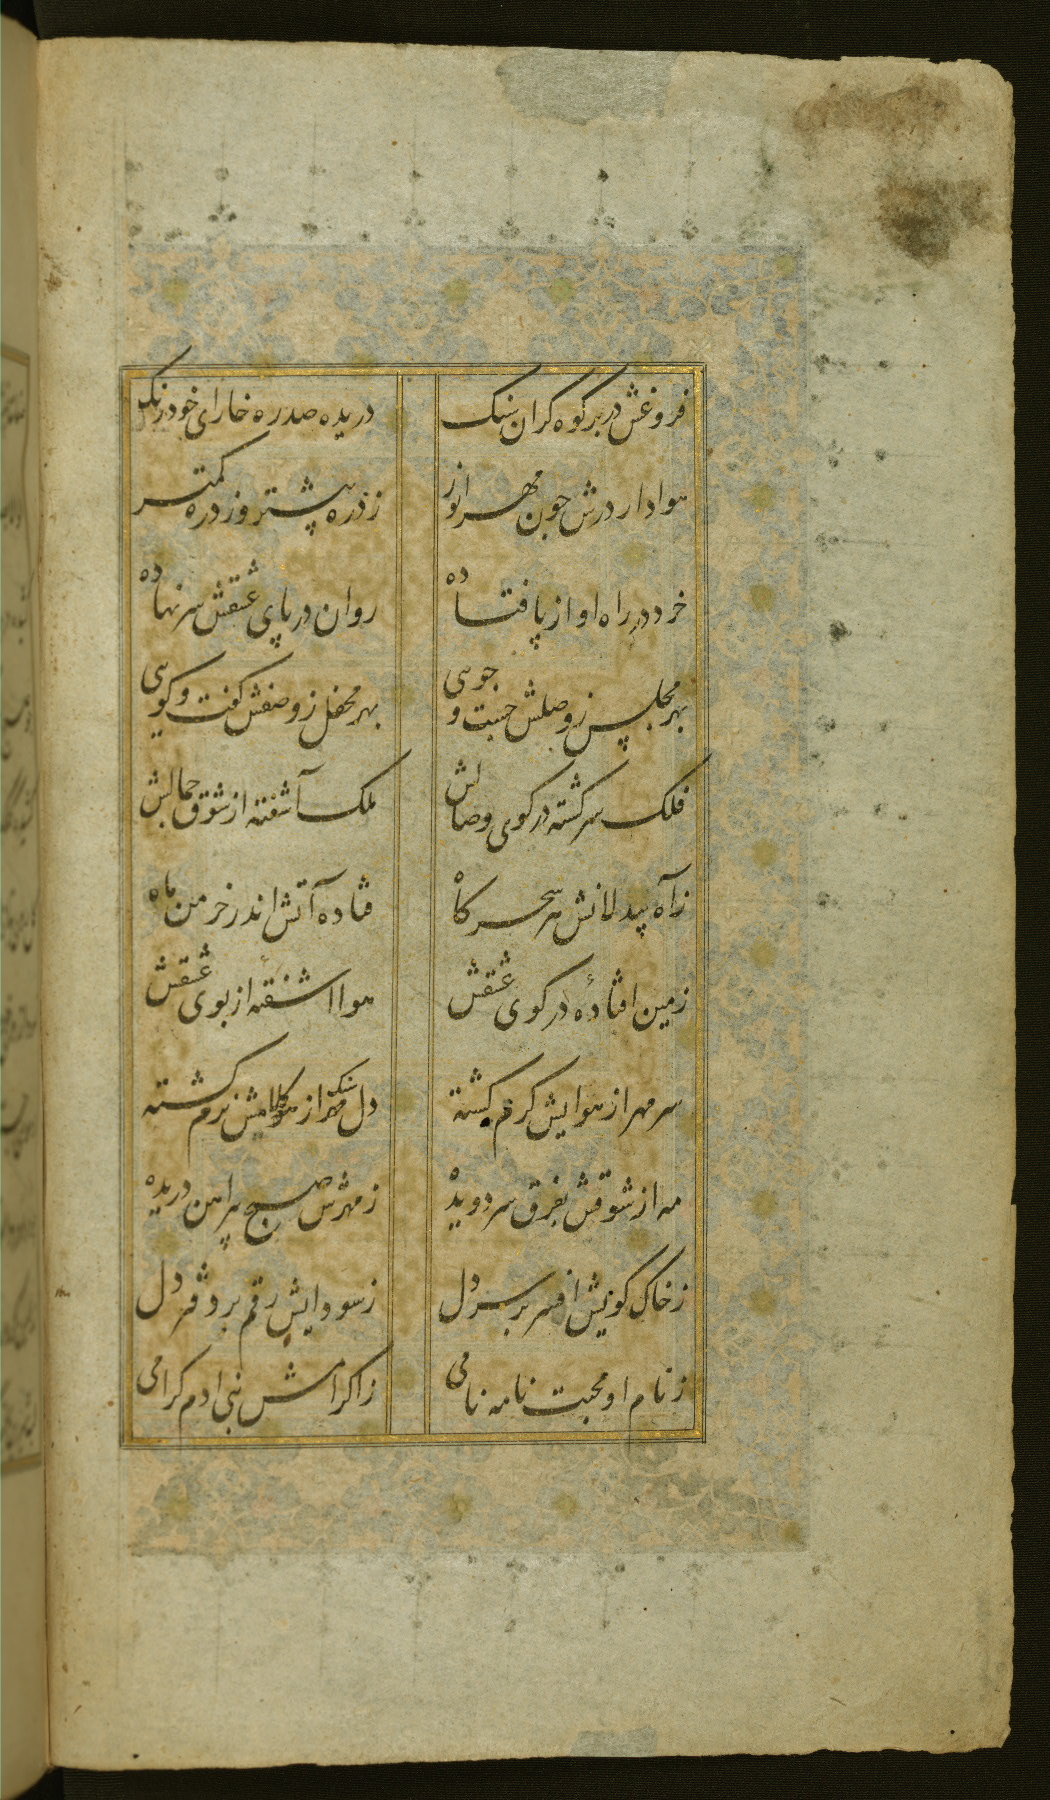 فروغش در بر کوه کران سنک
دریده صدره خارای خود رنک
هوادار درش جون مهر انور
ز ذره پیشتر وز دره کمتر
خرد در راه او از پا فتاده
روان در پای عشقش سر نهاده
بهر مجلس ز وصلش جست و جوی
بهر محفل ز وصفش کفت و کوی
فلک سر کشته در کوی وصالش
ملک آشفته از شوق جمالش
ز آه بیدلانش هر سحرکاه
فتاده آتش اندر خرمن ماه
زمین افتادهٔ در کوی عشقش
هوا اشفتهٔ از بوی عشقش
سر مهر از هوایش کرم کشته
دل سنک از کلامش نرم کشته
مه از شوقش بفرق سر دویده
ز مهرش صبح پیراهن دریده
ز خاک کویش افسر بر سر دل
ز سودایش رقم بر دفتر دل
ز نام او محبت نامه نامی
ز اکرامش بنی ادم کرامی